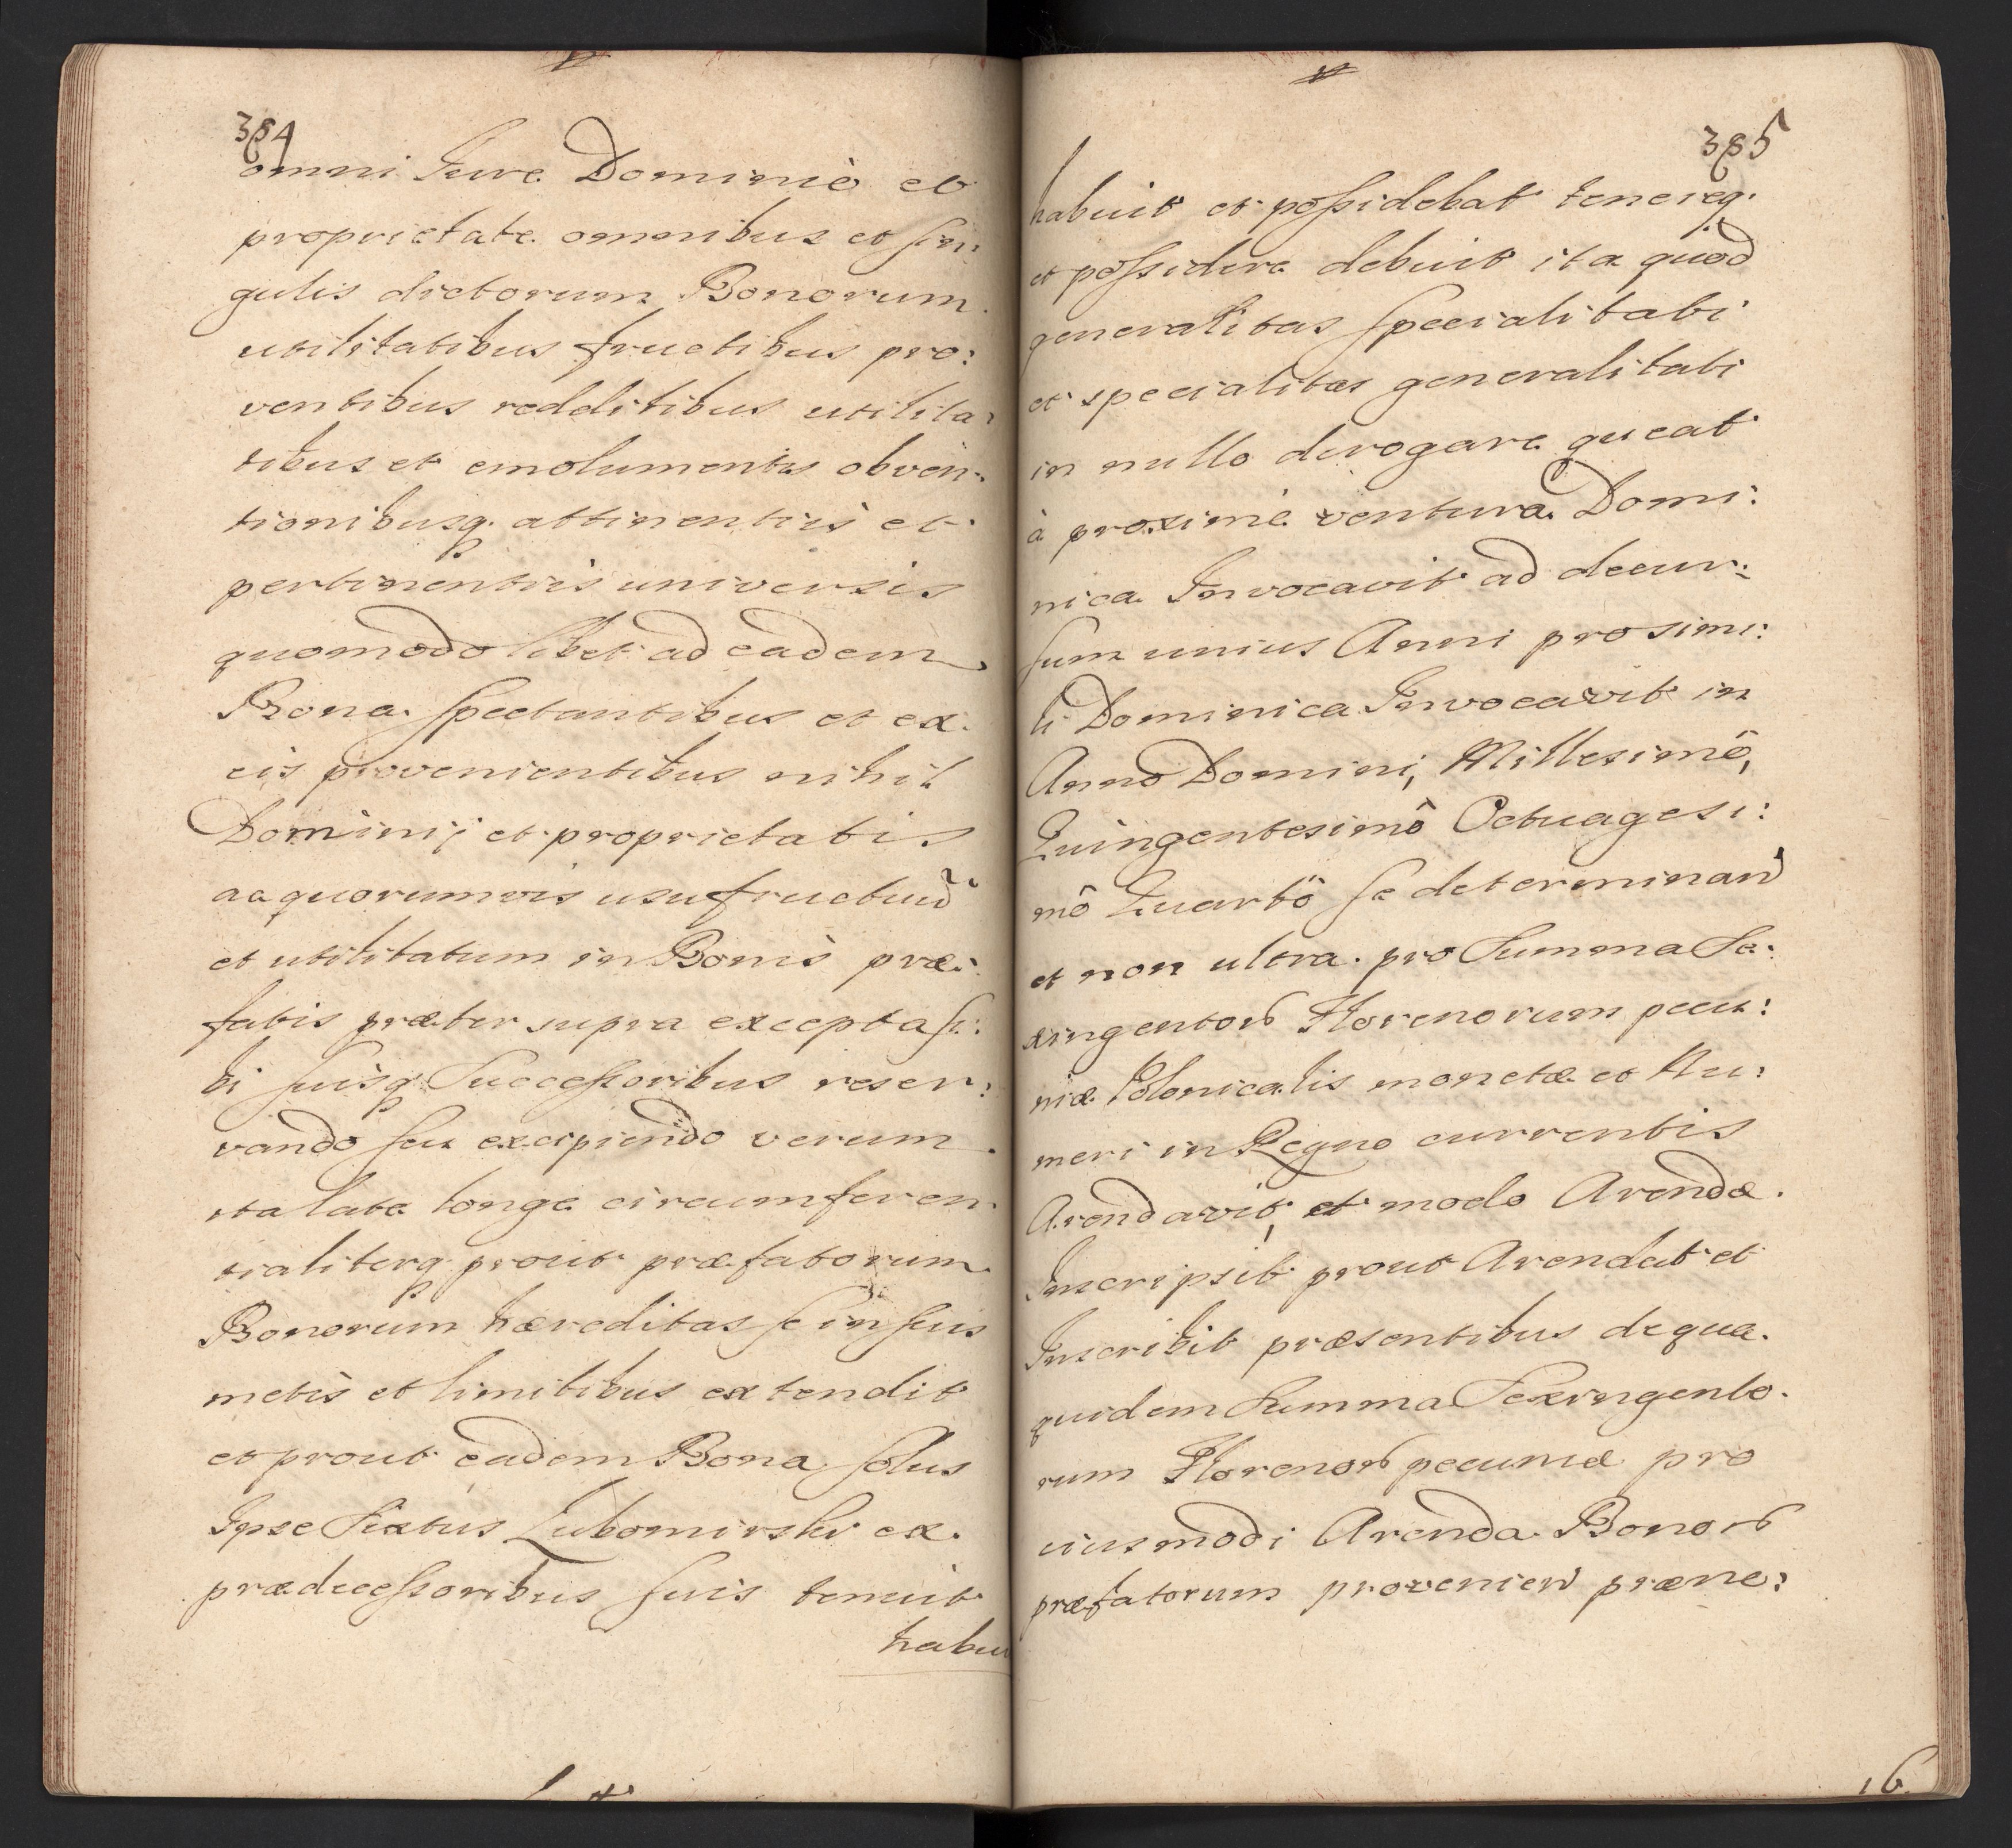 384
omni Jure Dominiò et
proprietate omnibus et sin:
gulis dictorum Bonorum
utilitatibus fructibus pro:
ventibus redditibus utilita:
tibus et emolumentis obven:
tionibusq. attinentiis et
pertinentiis universis
quomodo libet ad eadem
Bona spectantibus et ex
eis provenientibus nihil
Dominij et proprietatis
ac quorumvis usufructuũ
et utilitatum in Bonis præ:
fatis præter supra excepta si:
bi suisq. Successoribus reser:
vando seu excipiendo verum
ita late longe circumferen
tialiterq. prout præfatorum
Bonorum hæreditas se in suis
metis et limitibus extendit
et prout eadem Bona solus
Ipse Sixtus Lubomirski ex
prædecessoribus suis tenuit
habu
385
habuit et possidebat tenereq.
et possidere debuit ita quod
generalitas specialitati
et specialitas generalitati
in nullo derogare queat
à proxime ventura Domi:
nica Invocavit ad decur:
sum unius Anni proximi:
li Dominica Invocavit in
Anno Domini, Millesimô,
Quingentesimô Octuagesi:
mô Quartô se determinan
et non ultra pro Summa Se:
xingentor Florenorum pecu:
niæ Polonicalis monetæ et Nu:
meri in Regno currentis
Arendavit, et modo Arendæ
Inscripsit prout Arendat et
Inscribit præsentibus de qua
quidem Summa Sexingento
rum Florenor pecuniæ pro
eiusmodi Arenda Bonor
præfatorum provenien præne:
16.